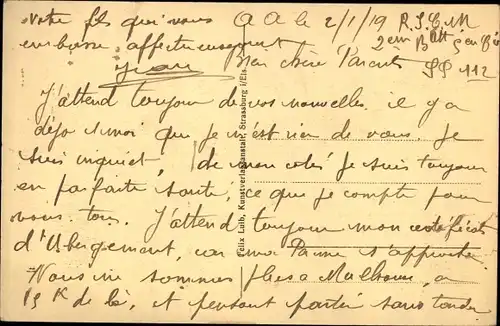 votre fils qui vous
embrasse affectueusement
Jean
A A le 2/1/19
R.I.C.M
2em Batt
SP 112
Mon chère Parents
J'attend toujour de vos nouvelles il y a
déjà 1 moi que je n'est rien de vous. Je
suis inquiet, de mon coté je suis toujour
en parfaite santé, ce que je compte pour
vous tous. J'attend toujour mon certificat
d'Ubergement, car ma Perme s'approche
Nous ne sommes plus a Mulhouse, a
15 K de là, et pensont partir sans tarder
Felix Luib, Kunstverlagsanstalt, Strassburg i/Els.